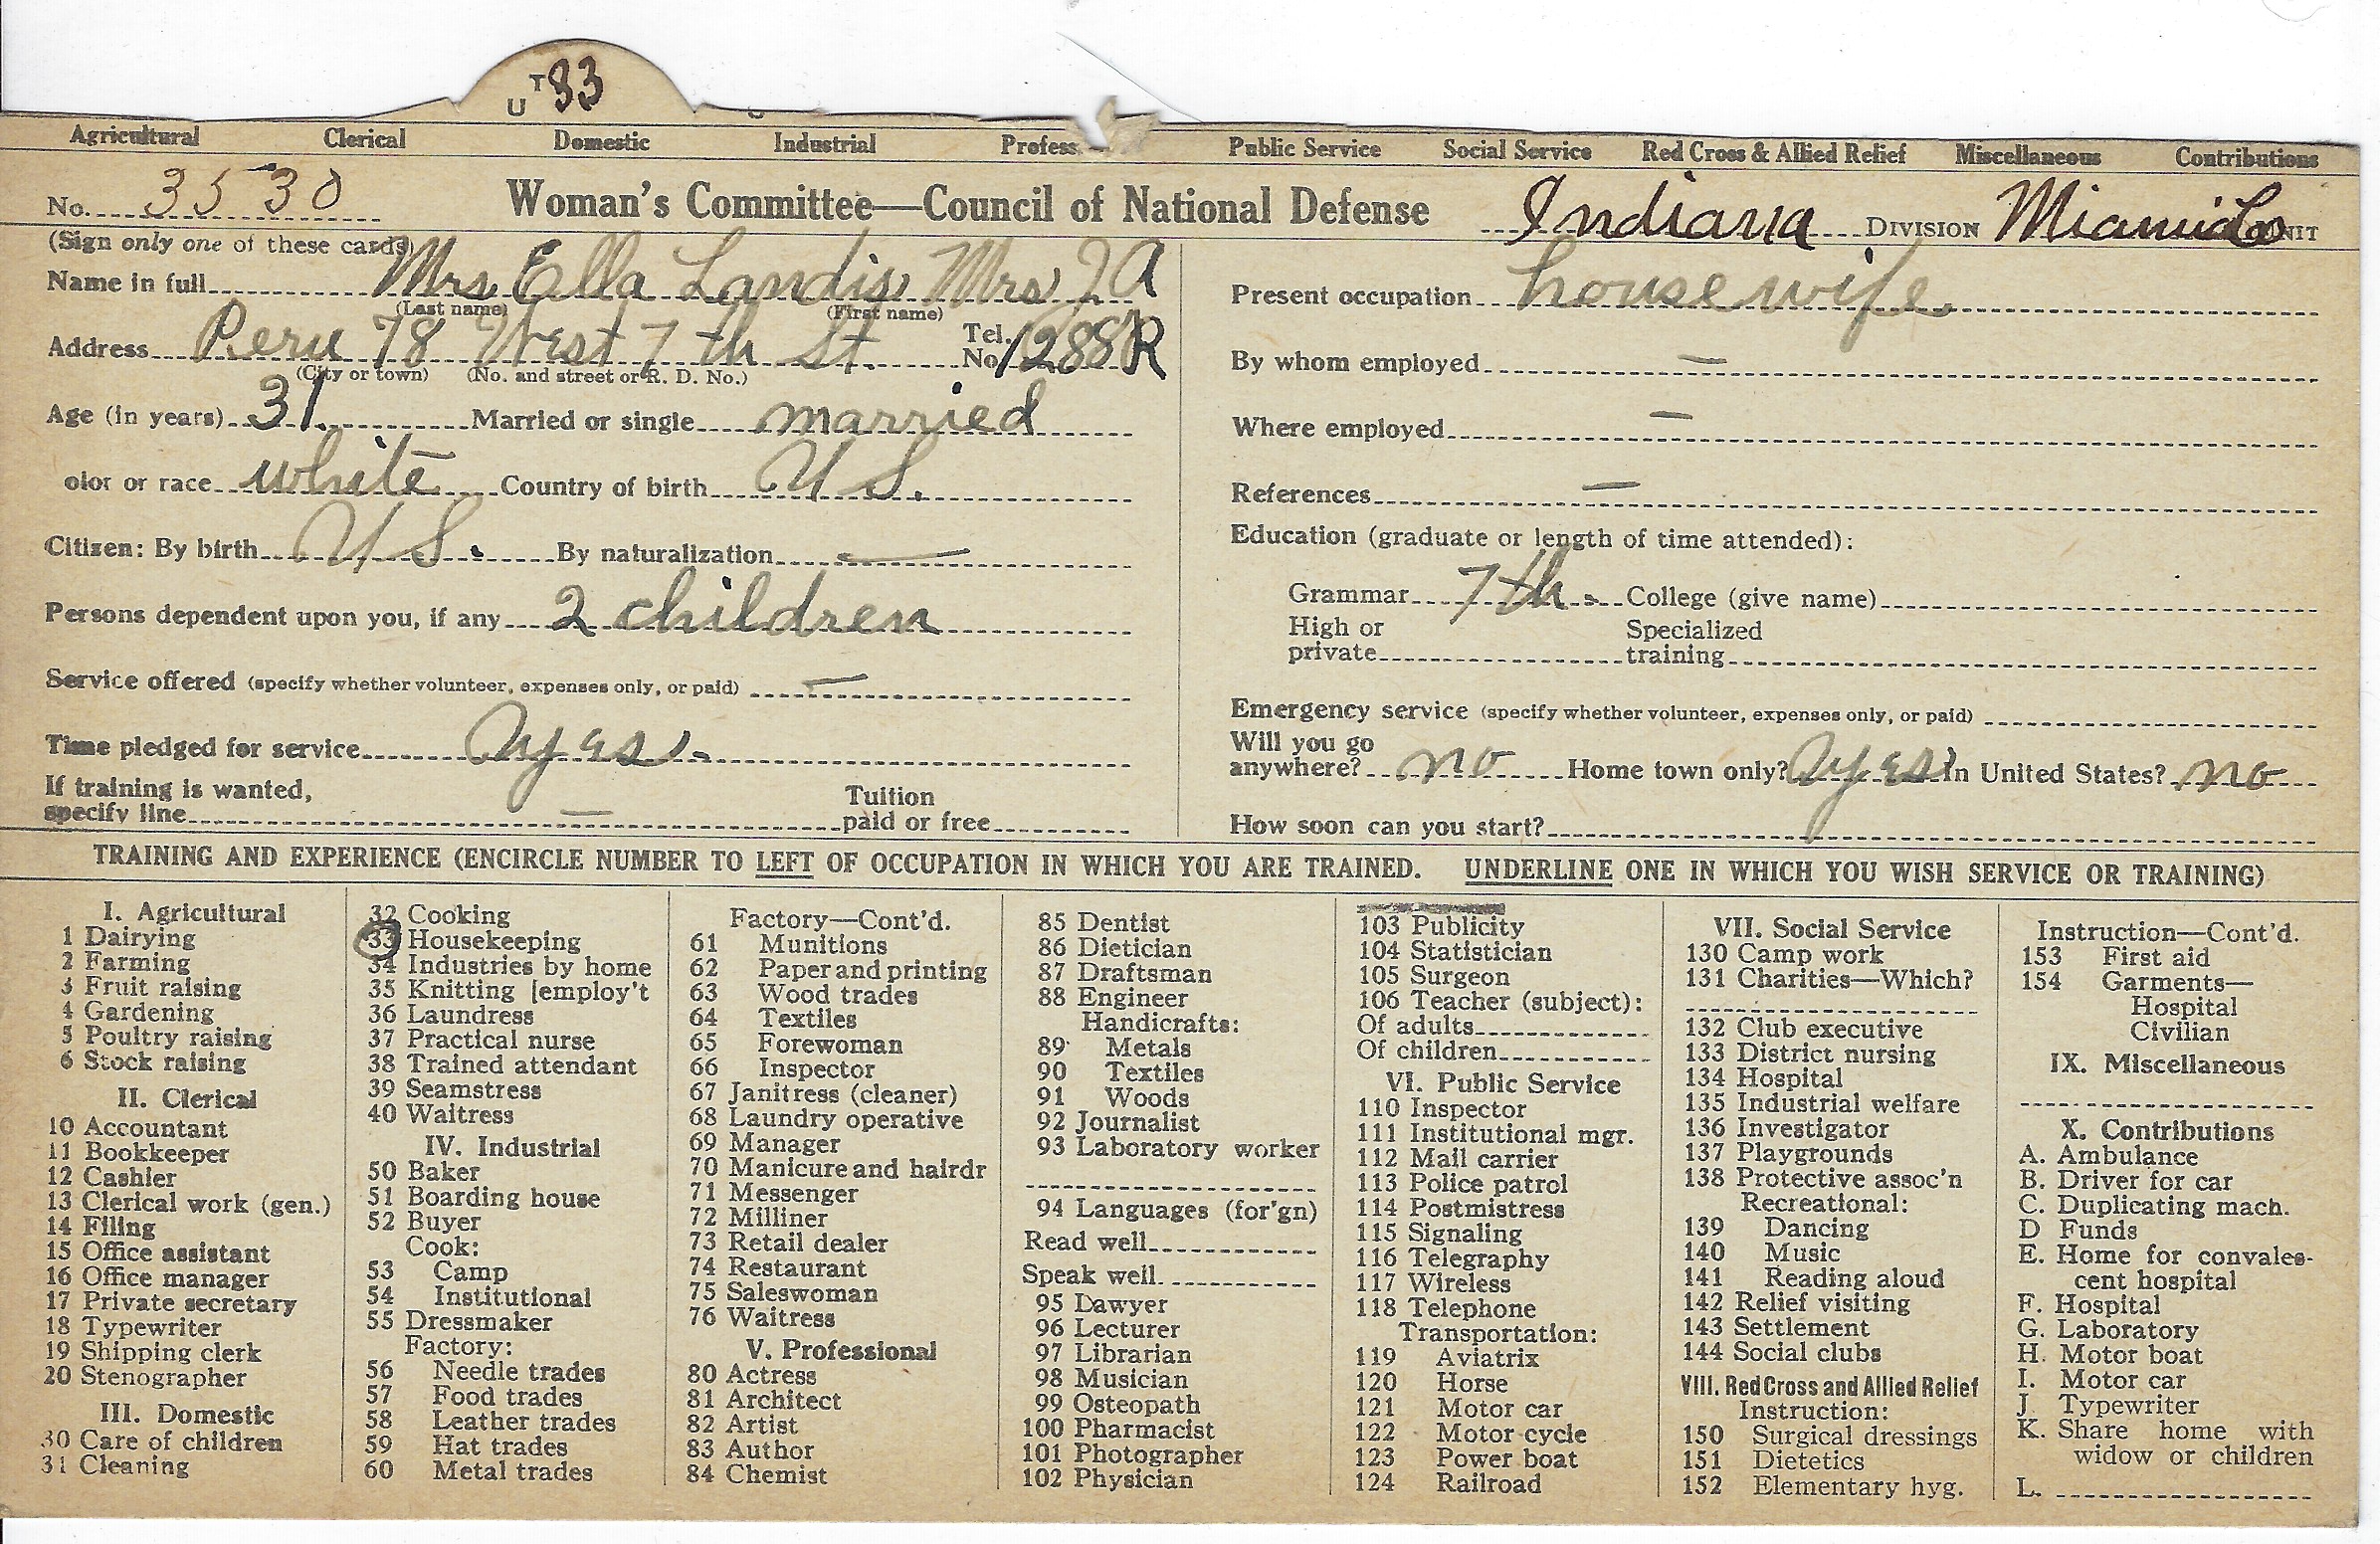 U T 33
Agricultural Clerical Domestic Industrial Profess Public Service Social Service Red Cross & Allied Relief Miscellaneous Contributions
No. 3530 Woman's Committee—Council of National Defense Indiana DIVISION Miami Co UNIT
(Sign only one of these cards)
Name in full Mrs Ella Landis Mrs J A
(Last name) (First name)
Address Peru 78 West 7th St. Tel. No. 1288R
(City or town) (No. and street or R. D. No.)
Age (in years) 31. Married or single married
olor or race white Country of birth U S.
Citizen: By birth U S. By naturalization —
Persons dependent upon you, if any 2 children
Service offered (specify whether volunteer, expenses only, or paid) —
Time pledged for service yes.
If training is wanted,
specify line — Tuition paid or free
Present occupation housewife
By whom employed —
Where employed —
References —
Education (graduate or length of time attended):
Grammar 7th. College (give name)
High or private Specialized training
Emergency service (specify whether volunteer, expenses only, or paid)
Will you go anywhere? no Home town only? yes In United States? no
How soon can you start?
TRAINING AND EXPERIENCE (ENCIRCLE NUMBER TO LEFT OF OCCUPATION IN WHICH YOU ARE TRAINED. UNDERLINE ONE IN WHICH YOU WISH SERVICE OR TRAINING)
I. Agricultural
1 Dairying
2 Farming
3 Fruit raising
4 Gardening
5 Poultry raising
6 Stock raising
II. Clerical
10 Accountant
11 Bookkeeper
12 Cashier
13 Clerical work (gen.)
14 Filing
15 Office assistant
16 Office manager
17 Private secretary
18 Typewriter
19 Shipping clerk
20 Stenographer
III. Domestic
30 Care of children
31 Cleaning
32 Cooking
33 Housekeeping
34 Industries by home
35 Knitting [employ't
36 Laundress
37 Practical nurse
38 Trained attendant
39 Seamstress
40 Waitress
IV. Industrial
50 Baker
51 Boarding house
52 Buyer
Cook:
53 Camp
54 Institutional
55 Dressmaker
Factory:
56 Needle trades
57 Food trades
58 Leather trades
59 Hat trades
60 Metal trades
Factory—Cont'd.
61 Munitions
62 Paper and printing
63 Wood trades
64 Textiles
65 Forewoman
66 Inspector
67 Janitress (cleaner)
68 Laundry operative
69 Manager
70 Manicure and hairdr
71 Messenger
72 Milliner
73 Retail dealer
74 Restaurant
75 Saleswoman
76 Waitress
V. Professional
80 Actress
81 Architect
82 Artist
83 Author
84 Chemist
85 Dentist
86 Dietician
87 Draftsman
88 Engineer
Handicrafts:
89 Metals
90 Textiles
91 Woods
92 Journalist
93 Laboratory worker
94 Languages (for'gn)
Read well
Speak well
95 Lawyer
96 Lecturer
97 Librarian
98 Musician
99 Osteopath
100 Pharmacist
101 Photographer
102 Physician
103 Publicity
104 Statistician
105 Surgeon
106 Teacher (subject):
Of adults
Of children
VI. Public Service
110 Inspector
111 Institutional mgr.
112 Mail carrier
113 Police patrol
114 Postmistress
115 Signaling
116 Telegraphy
117 Wireless
118 Telephone
Transportation:
119 Aviatrix
120 Horse
121 Motor car
122 Motor cycle
123 Power boat
124 Railroad
VII. Social Service
130 Camp work
131 Charities—Which?
132 Club executive
133 District nursing
134 Hospital
135 Industrial welfare
136 Investigator
137 Playgrounds
138 Protective assoc'n
Recreational:
139 Dancing
140 Music
141 Reading aloud
142 Relief visiting
143 Settlement
144 Social clubs
VIII. Red Cross and Allied Relief
Instruction:
150 Surgical dressings
151 Dietetics
152 Elementary hyg.
Instruction—Cont'd.
153 First aid
154 Garments—
Hospital
Civilian
IX. Miscellaneous
X. Contributions
A. Ambulance
B. Driver for car
C. Duplicating mach.
D Funds
E. Home for convales-
cent hospital
F. Hospital
G. Laboratory
H. Motor boat
I. Motor car
J. Typewriter
K. Share home with
widow or children
L.